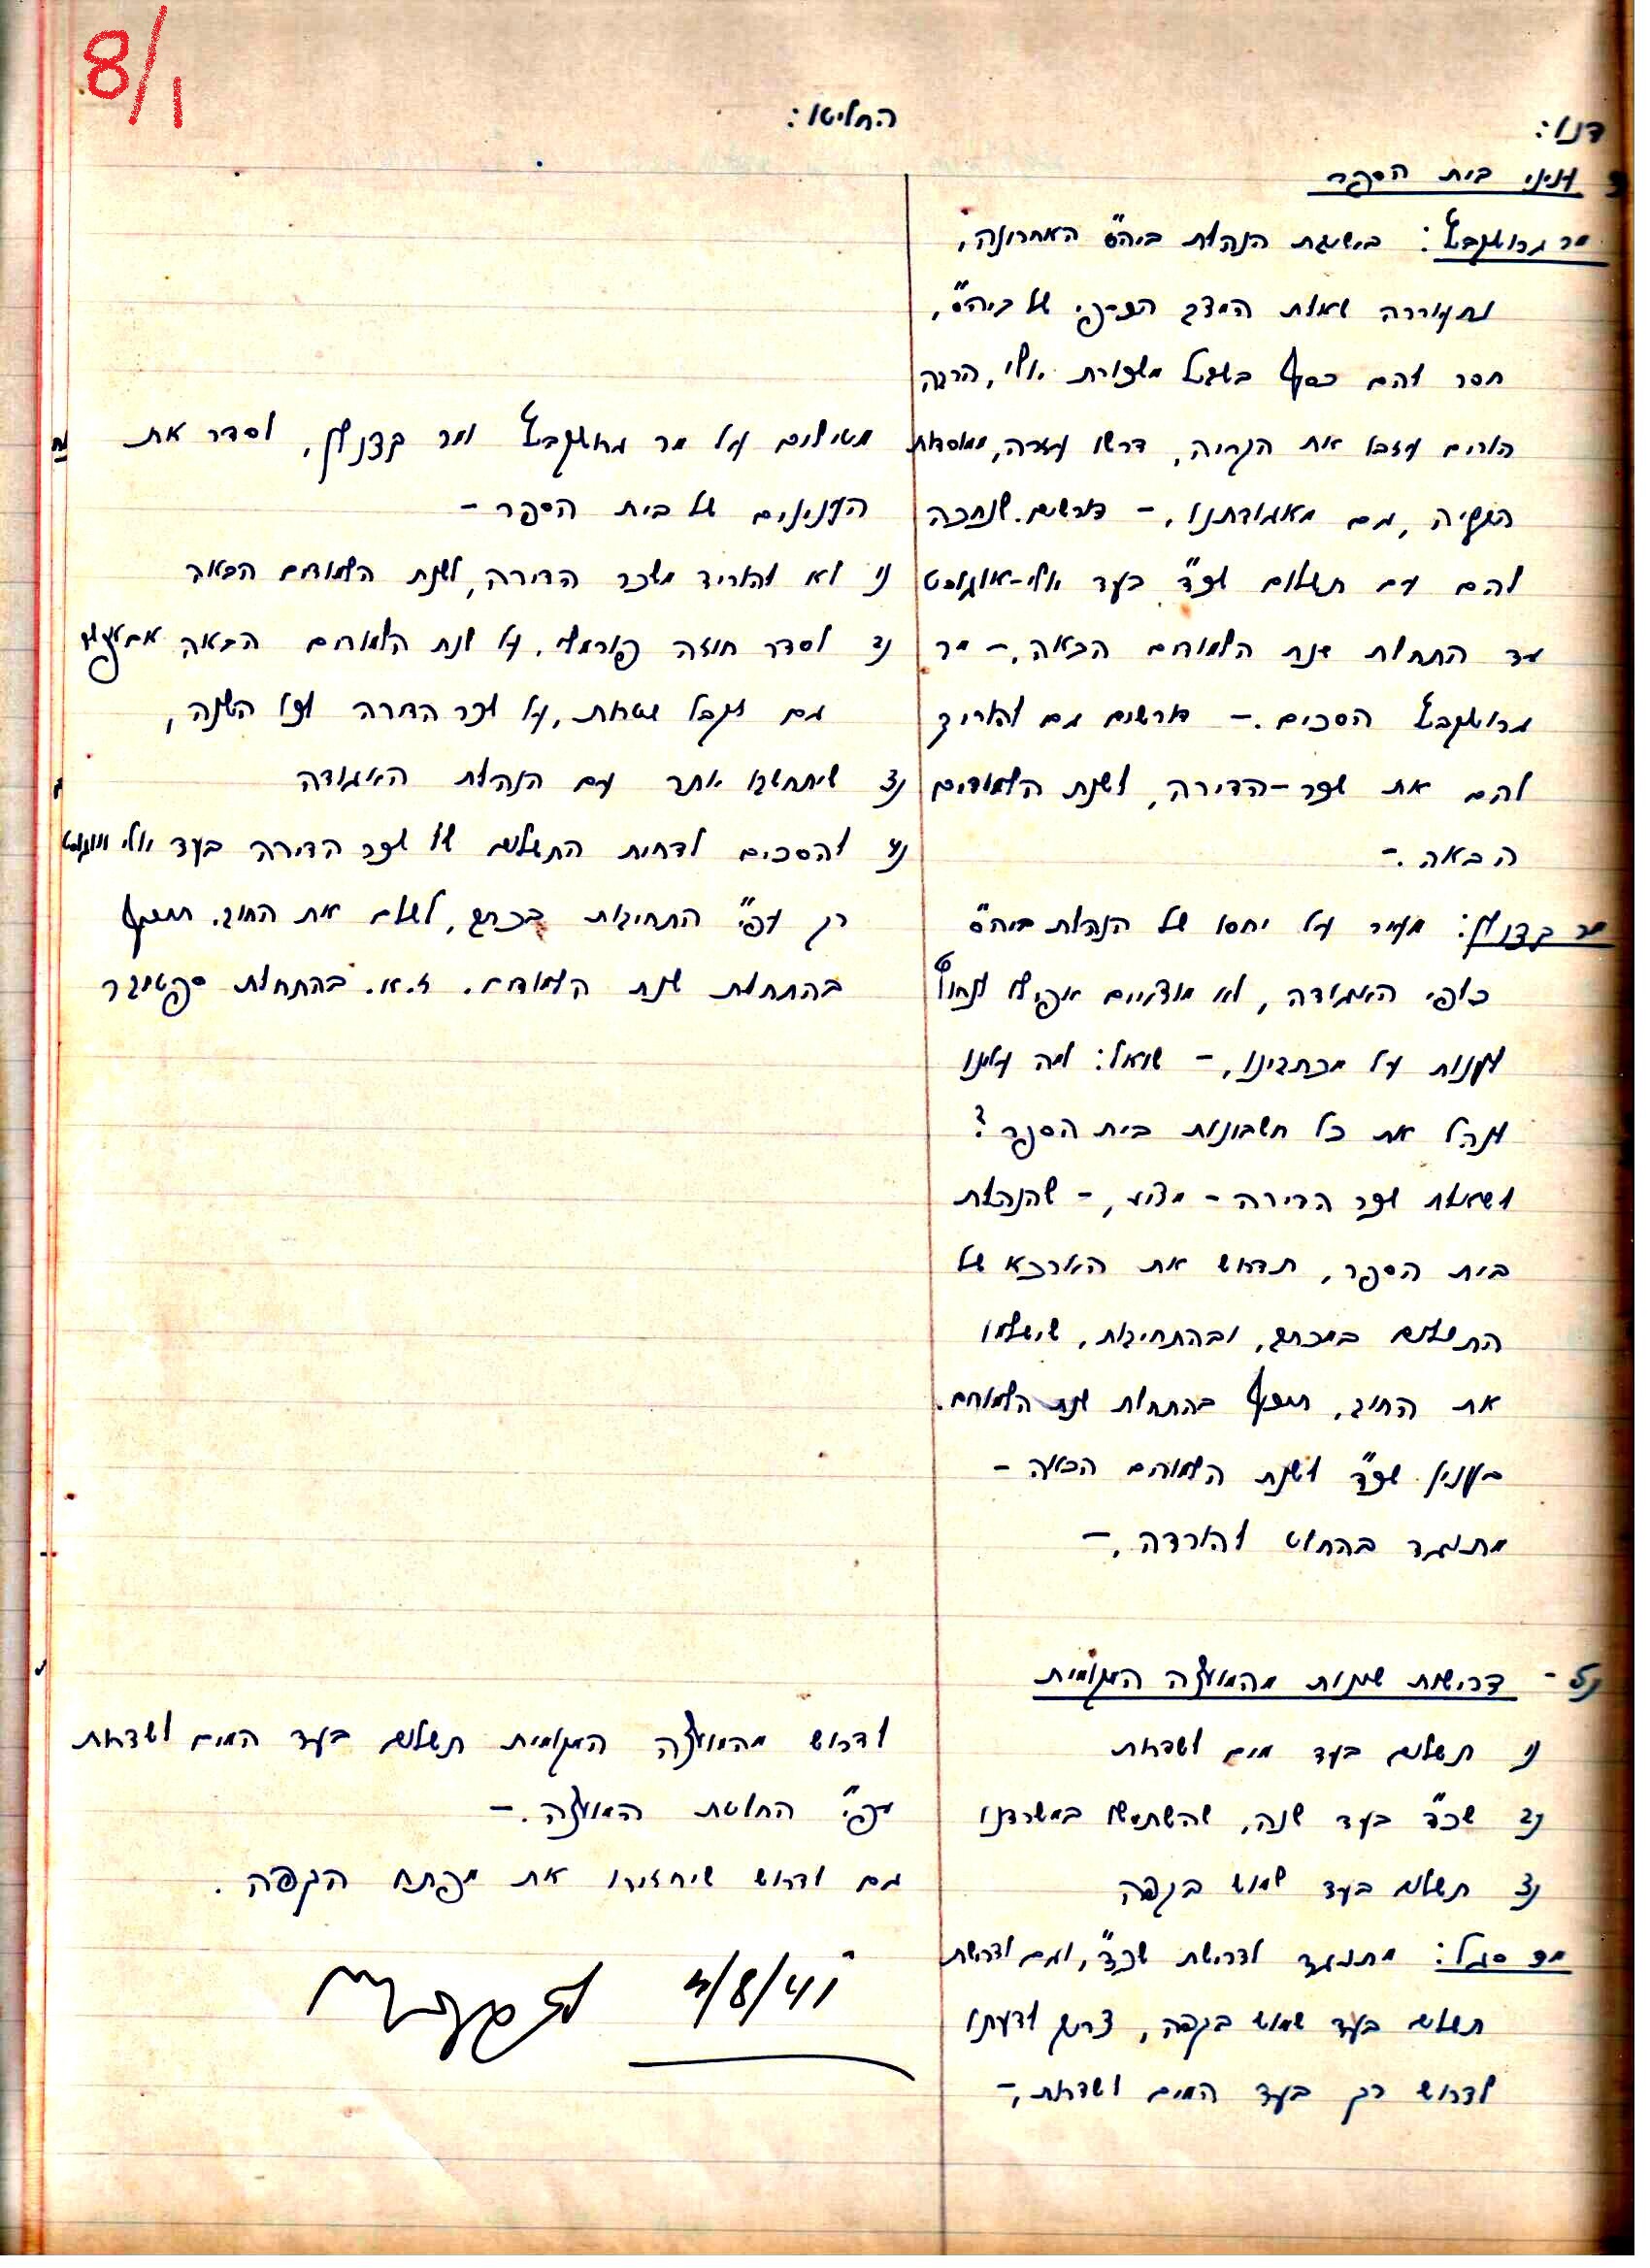 8/1
דנו:
עניני בית הספר
מר גרוטקבט: בישיבת הנהלת ביה"ס האחרונה,
נתעוררה שאלת המצב הכספי של ביה"ס,
חסר להם כסף בשביל משכורת יולי, הרבה
הורים עזבו את הקריה, דרשו עזרה, ממוסדות
הקריה, גם מאגודתנו, – דורשים שנחכה
להם עם תשלום שכ"ד בעד יולי-אוגוסט
עד התחלת שנת הלמודים הבאה. – מר
גרוטקבט הסכים. – דורשים גם להוריד
להם את שכר-הדירה, לשנת הלמודים
הבאה. –
מעיר על יחסו של הנהלת ביה"ס
כלפי האגודה, לא מוצאים אפילו לנחוץ
לענות על מכתבינו, – שואל: למה עלינו
לנהל את כל חשבונות בית הספר?
לשאלת שכר הדירה – מציע, – שהנהלת
בית הספר, תדרוש את הארכא של
התשלום במכתב, ובהתחיבות, שישלמו
את החוב, תיכף בהתחלת שנת הלמודים.
בענין שכ"ד לשנת הלמודים הבאה –
מתנגד בהחלט להורדה, –
5 - דרישות שונות מהמועצה המקומית
1 תשלום בעד מים לשדרות
2 שכ"ד בעד שנה, שהשתמשו במשרדנו
3 תשלום בעד שמוש בקפה
מר סגל: מתנגד לדרישת שכ"ד, וגם לדרישת
תשלום בעד שמוש בקפה, צריך לדעתו
לדרוש רק בעד המים לשדרות, –
החליטו:
מטילים על מר גרוטקבט ומר, לסדר את
הענינים של בית הספר –
1 לא להוריד משכר הדירה, לשנת הלמודים הבאה
2 לסדר חוזה פורמלי, על שנת הלמודים הבאה
גם לקבל שטרות, על שכר הדירה לפי השנה,
3 שיתחשבו יותר עם הנהלת האגודה
4 להסכים לדחית התשלום של שכר הדירה בעד יולי אוגוסט
רק עפ"י התחיבות בכתב, לשלם את החוב, תיכף
בהתחלת שנת הלמודים. ז.א. בהתחלת ספטמבר
לדרוש מהמועצה המקומית תשלום בעד המים לשדרות
עפ"י החלטת המועצה. –
גם לדרוש שיחזירו את מפתח הקפה.
4/8/41